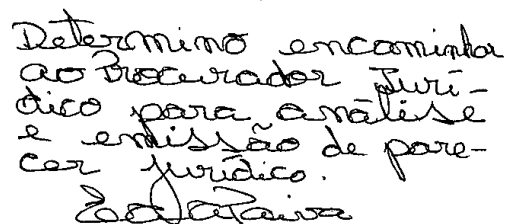 Determino encaminhar
ao Procurador Jurí-
dico para análise
e emissão de pare-
cer jurídico.